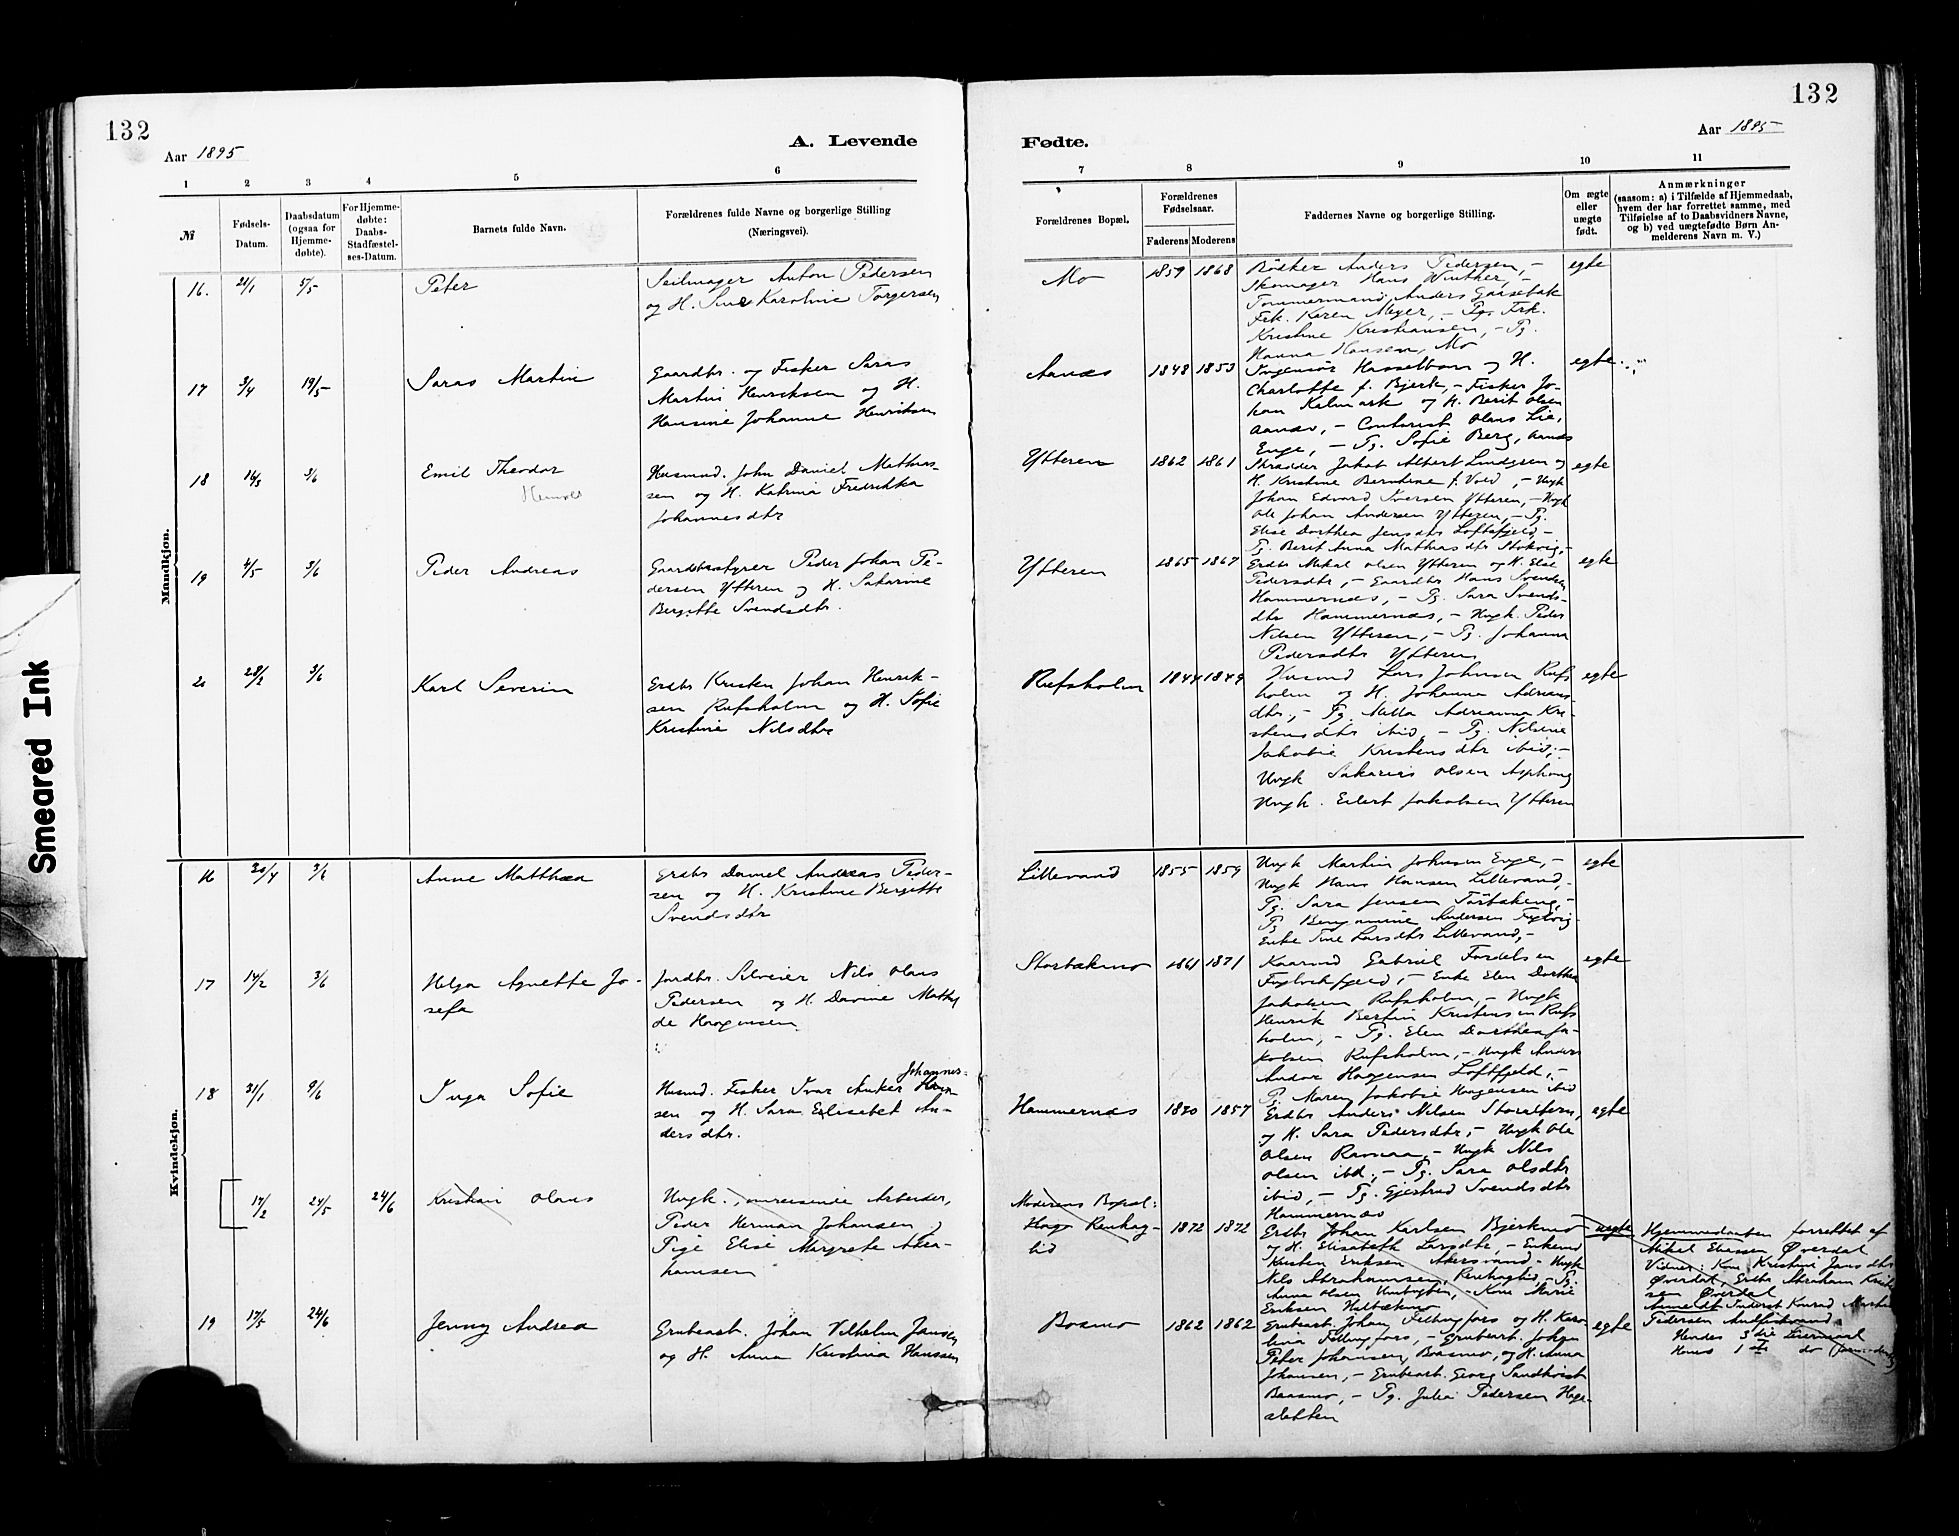 132
132
Aar 1895
A. Levende
Fødte.
Aar 1895
1 2 3 4 5 6
7 8 9 10 11
№
Fødsels-
Datum.
Daabsdatum
(ogsaa for
Hjemme-
døbte).
For Hjemme-
døbte:
Daabs-
Stadfæstel-
ses-Datum.
Barnets fulde Navn.
Forældrenes fulde Navne og borgerlige Stilling
(Næringsvei).
Forældrenes Bopæl.
Forældrenes
Fødselsaar.
Faderens Moderens
Faddernes Navne og borgerlige Stilling.
Om ægte
eller
uægte
født.
Anmærkninger
(saasom: a) i Tilfælde af Hjemmedaab,
hvem der har forrettet samme, med
Tilføielse af to Daabsvidners Navne,
og b) ved uægtefødte Børn An-
melderens Navn m. V.)
Mandkjøn.
16. 21/1 5/5 Peter
Seilmager Anton Pedersen
og H. Karoline Torgersen
Mo 1859 1868
Bødker Anders Pedersen, -
Skomager Hans Winther, -
Tømmermand Anders Gaasebak
Frk. Karen Meyer, - Frk.
Kristine Kristiansen, - Pg.
Hanna Hansen, Mo
egte
17 3/4 19/5 Saras Martin
Gaardbr. og Fisker Saras
Martin Henriksen og H.
Hansine Johanne Henriksen
Aanæs 1848 1853
Ingeniør Hasselbom og H.
Charlotte f. Bjerk, - Fisker Jo-
han Kalmark og H. Berit Olsen
Aanæs, - Contorist Olaus Lie,
Enge, - Pg. Sofie Berg, Aanæs
egte
18 14/3 3/6 Emil Theodor
Husmd. John Daniel Mathias-
sen og H. Katrina Fredrikka
Johannesdtr
Ytteren 1862 1861
Skrædder Jakob Albert Lindgren og
H. Kristine Berntine f. Vold, - Ungk
Johan Edvard Iversen Ytteren, - Ungk
Ole Johan Andersen Ytteren, - Pg.
Elise Dorthea Jensdtr Loftfjeld, -
Pg. Berit Anna Mathiasdtr Stokvig, -
egte
19 4/5 3/6 Peder Andreas
Gaardbestyrer Peder Johan Pe-
dersen Ytteren og H. Sakarine
Bergitte Svendsdtr.
Ytteren 1865 1867
Erdbr Mikal Olsen Ytteren og H. Else
Pedersdtr, - Gaardbr Hans Svendsen
Hammernæs, - Pg. Sara Svends-
dtr Hammernæs, - Ungk. Peder
Nilsen Ytteren, - Pg. Johanna
Pedersdtr Ytteren
egte
20 28/2 3/6 Karl Severin
Erdbr Kristen Johan Henrik-
sen Rufsholm og H. Sofie
Kristine Nilsdtr
Rufsholm 1844 1849
Husmd Lars Johnsen Rufs
holm og H. Johanna Adrians
dtr, - Pg. Milla Adrianna Kri-
stensdtr ibid, - Pg. Nilsine
Jakobie Kristensdtr ibid; -
Ungk Sakarias Olsen Asphaug
Ungk. Eilert Jakobsen Ytteren
egte
Kvindekjøn.
16 30/4 3/6 Anne Matthea
Erdbr Daniel Andreas Peder-
sen og H. Kristine Bergitte
Svendsdtr
Lillevand 1855 1859
Ungk Martin Johnsen Enge, -
Ungk Hans Hansen Lillevand, -
Pg. Sara Jensen Torbækeng, -
Pg Benjamine Andersen
Enke Tine Larsdtr Lillevand, -
egte
17 14/2 3/6 Helga Agnette Jo-
sefa
Jordbr. Nils Olaus
Pedersen og H. Davine Mathil
de Haagensen
Storbækmo 1861 1871
Kaarmd Gabriel Fordelsen
- Enke Elen Dorthea
Jakobsen Rufsholm, - Ungk
Henrik Bertin Kristensen Rufs
holm, - Pg. Elen Dorthea Ja-
kobsen Rufsholm, - Ungk Anders
Andor Haagensen Loftfjeld, -
Pg. Maren Jakobie Haagensen ibid
egte
18 31/1 9/6 Inga Sofie
Johannes-
Husmd. Fisker Ivar Anker
sen og H. Sara Elisabet An-
dersdtr.
Hammernæs 1870 1857
Erdbr Anders Nilsen Storalteren,
og H. Sara Pedersdtr, - Ungk Ole
Olsen Ravnaa, - Ungk Nils
Olsen ibd, - Pg. Sara Olsdtr
ibid, - Pg. Gjertrud Svendsdtr
Hammernæs
egte
14/2 24/5 24/6 Kristian Olaus
Ungk., omreisende Arbeider,
Peder Herman Johansen og
Pige Elise Margrete Abra-
hamsen
Moderens Bopæl:
Renhag-
lid
1872 1872
Erdbr Johan Karlsen Bjerkmo
og H. Elisabeth Larsdtr, - Enkemd
Kristen Eriksen Akersvand - Ungk
Nils Abrahamsen, Renhaglid, - Pg.
Anna Olsen - Kone Marie
Eriksen
uegte
Hjemmedaaben forrettet af
Mikal Eliassen Øverdal
Vidner: Kone Kristine Jansdtr
Øverdal, Erdbr Abraham Krist
sen Øverdal
Anmeldt Inderst Konrad Martin
Pedersen
Hendes 3die Leiermaal
Hans 1ste do
19 17/5 24/6 Jenny Andrea
Grubearb. Johan Vilhelm Jansen
og H. Anna Kristina Hanssen
Bosmo 1862 1862
Grubearb. Johan Fellingfors og H. Karo-
lina Fellingfors, - Grubearb. Johan
Peter Johansen, Bosmo, og H. Anna
Johansen, - Grubearb. Georg Sandkvist
Baasmo, - Pg. Julia Pedersen Hage-
sletten
egte
Smeared Ink